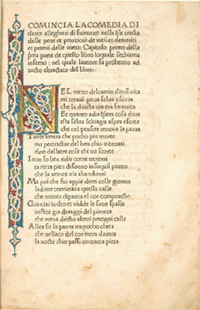 COMINCIA LA COMEDIA DI
dante alleghieri di fiorenze nella q̃le tracta
delle pene et punitioni de uitii et demeriti
et premii delle uirtu: Capitolo primo della
prima parte de questo libro loquale sechiama
inferno : nel quale lautore fa prohemio ad
tucto eltractato del libro:.
NEL mezo delcamin dinrã uita
mi trouai puna selua oscura
che la diricta uia era smarrita
Et quanto adir q̃lera cosa dura
esta selua seluagia aspra eforte
che nel pensier renoua la paura
Tante amara che pocho piu morte
ma pertractar del ben chio uitrouai
diro dellaltre cose chi uo scorte
I non so ben ridir come uentrai
tantera pien disonno insuquel punto
che la uerace uia abandonai
Ma poi che fui appie dum colle gionto
ladoue terminaua quella ualle
che mauea dipaura el cor compuncto
Guardai inalto et uidde le sue spalle
uestite gia deraggi del pianeta
che mena dricto altrui perogni calle
Allor fu la paura un pocho cheta
che nellaco del cor mera durata
la nocte chio passai contanta pieta